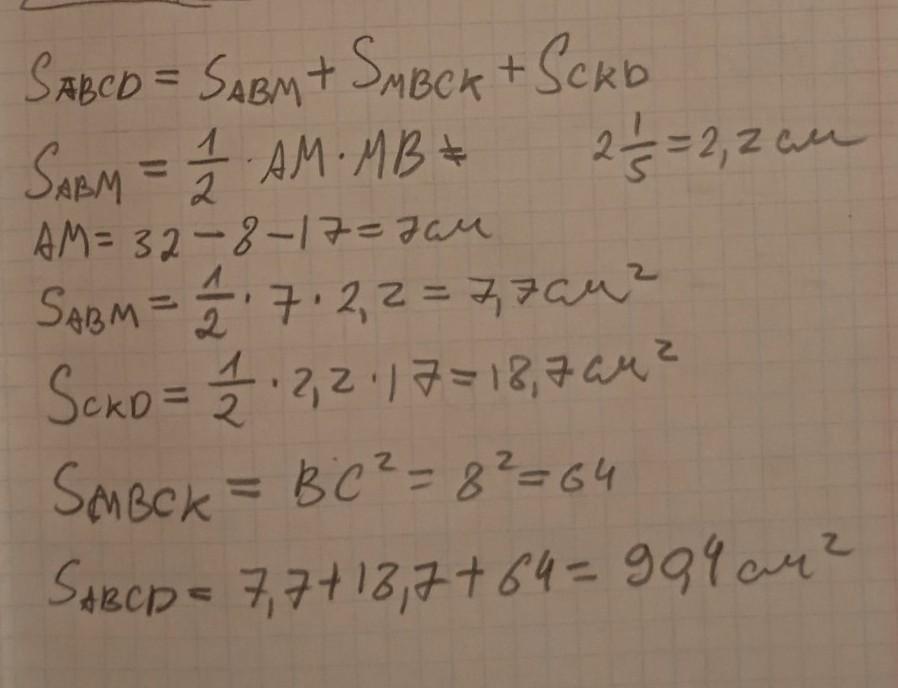 S_ABCD = S_ABM + S_MBCK + S_CKD
S_ABM = 1/2 · AM · MB = 2 1/5 = 2,2 см
AM = 32 - 8 - 17 = 7 см
S_ABM = 1/2 · 7 · 2,2 = 7,7 см²
S_CKD = 1/2 · 2,2 · 17 = 18,7 см²
S_MBCK = BC² = 8² = 64
S_ABCD = 7,7 + 18,7 + 64 = 90,4 см²